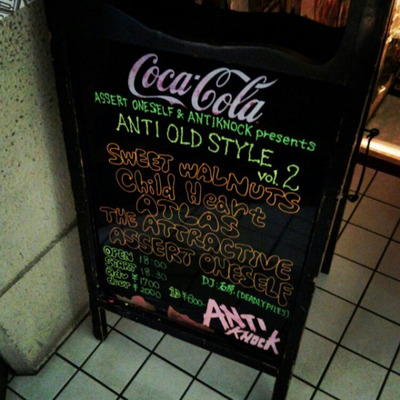 Coca-Cola
ASSERT ONESELF & ANTIKNOCK presents
ANTI OLD STYLE
vol. 2
SWEET WALNUTS
Child Heart
ATLAS
THE ATTRACTIVE
ASSERT ONESELF
OPEN 18:00
START 18:30
adv ¥1700
door ¥2000
DJ:石原.(DEADLYPILES)
ANTI
KNOCK